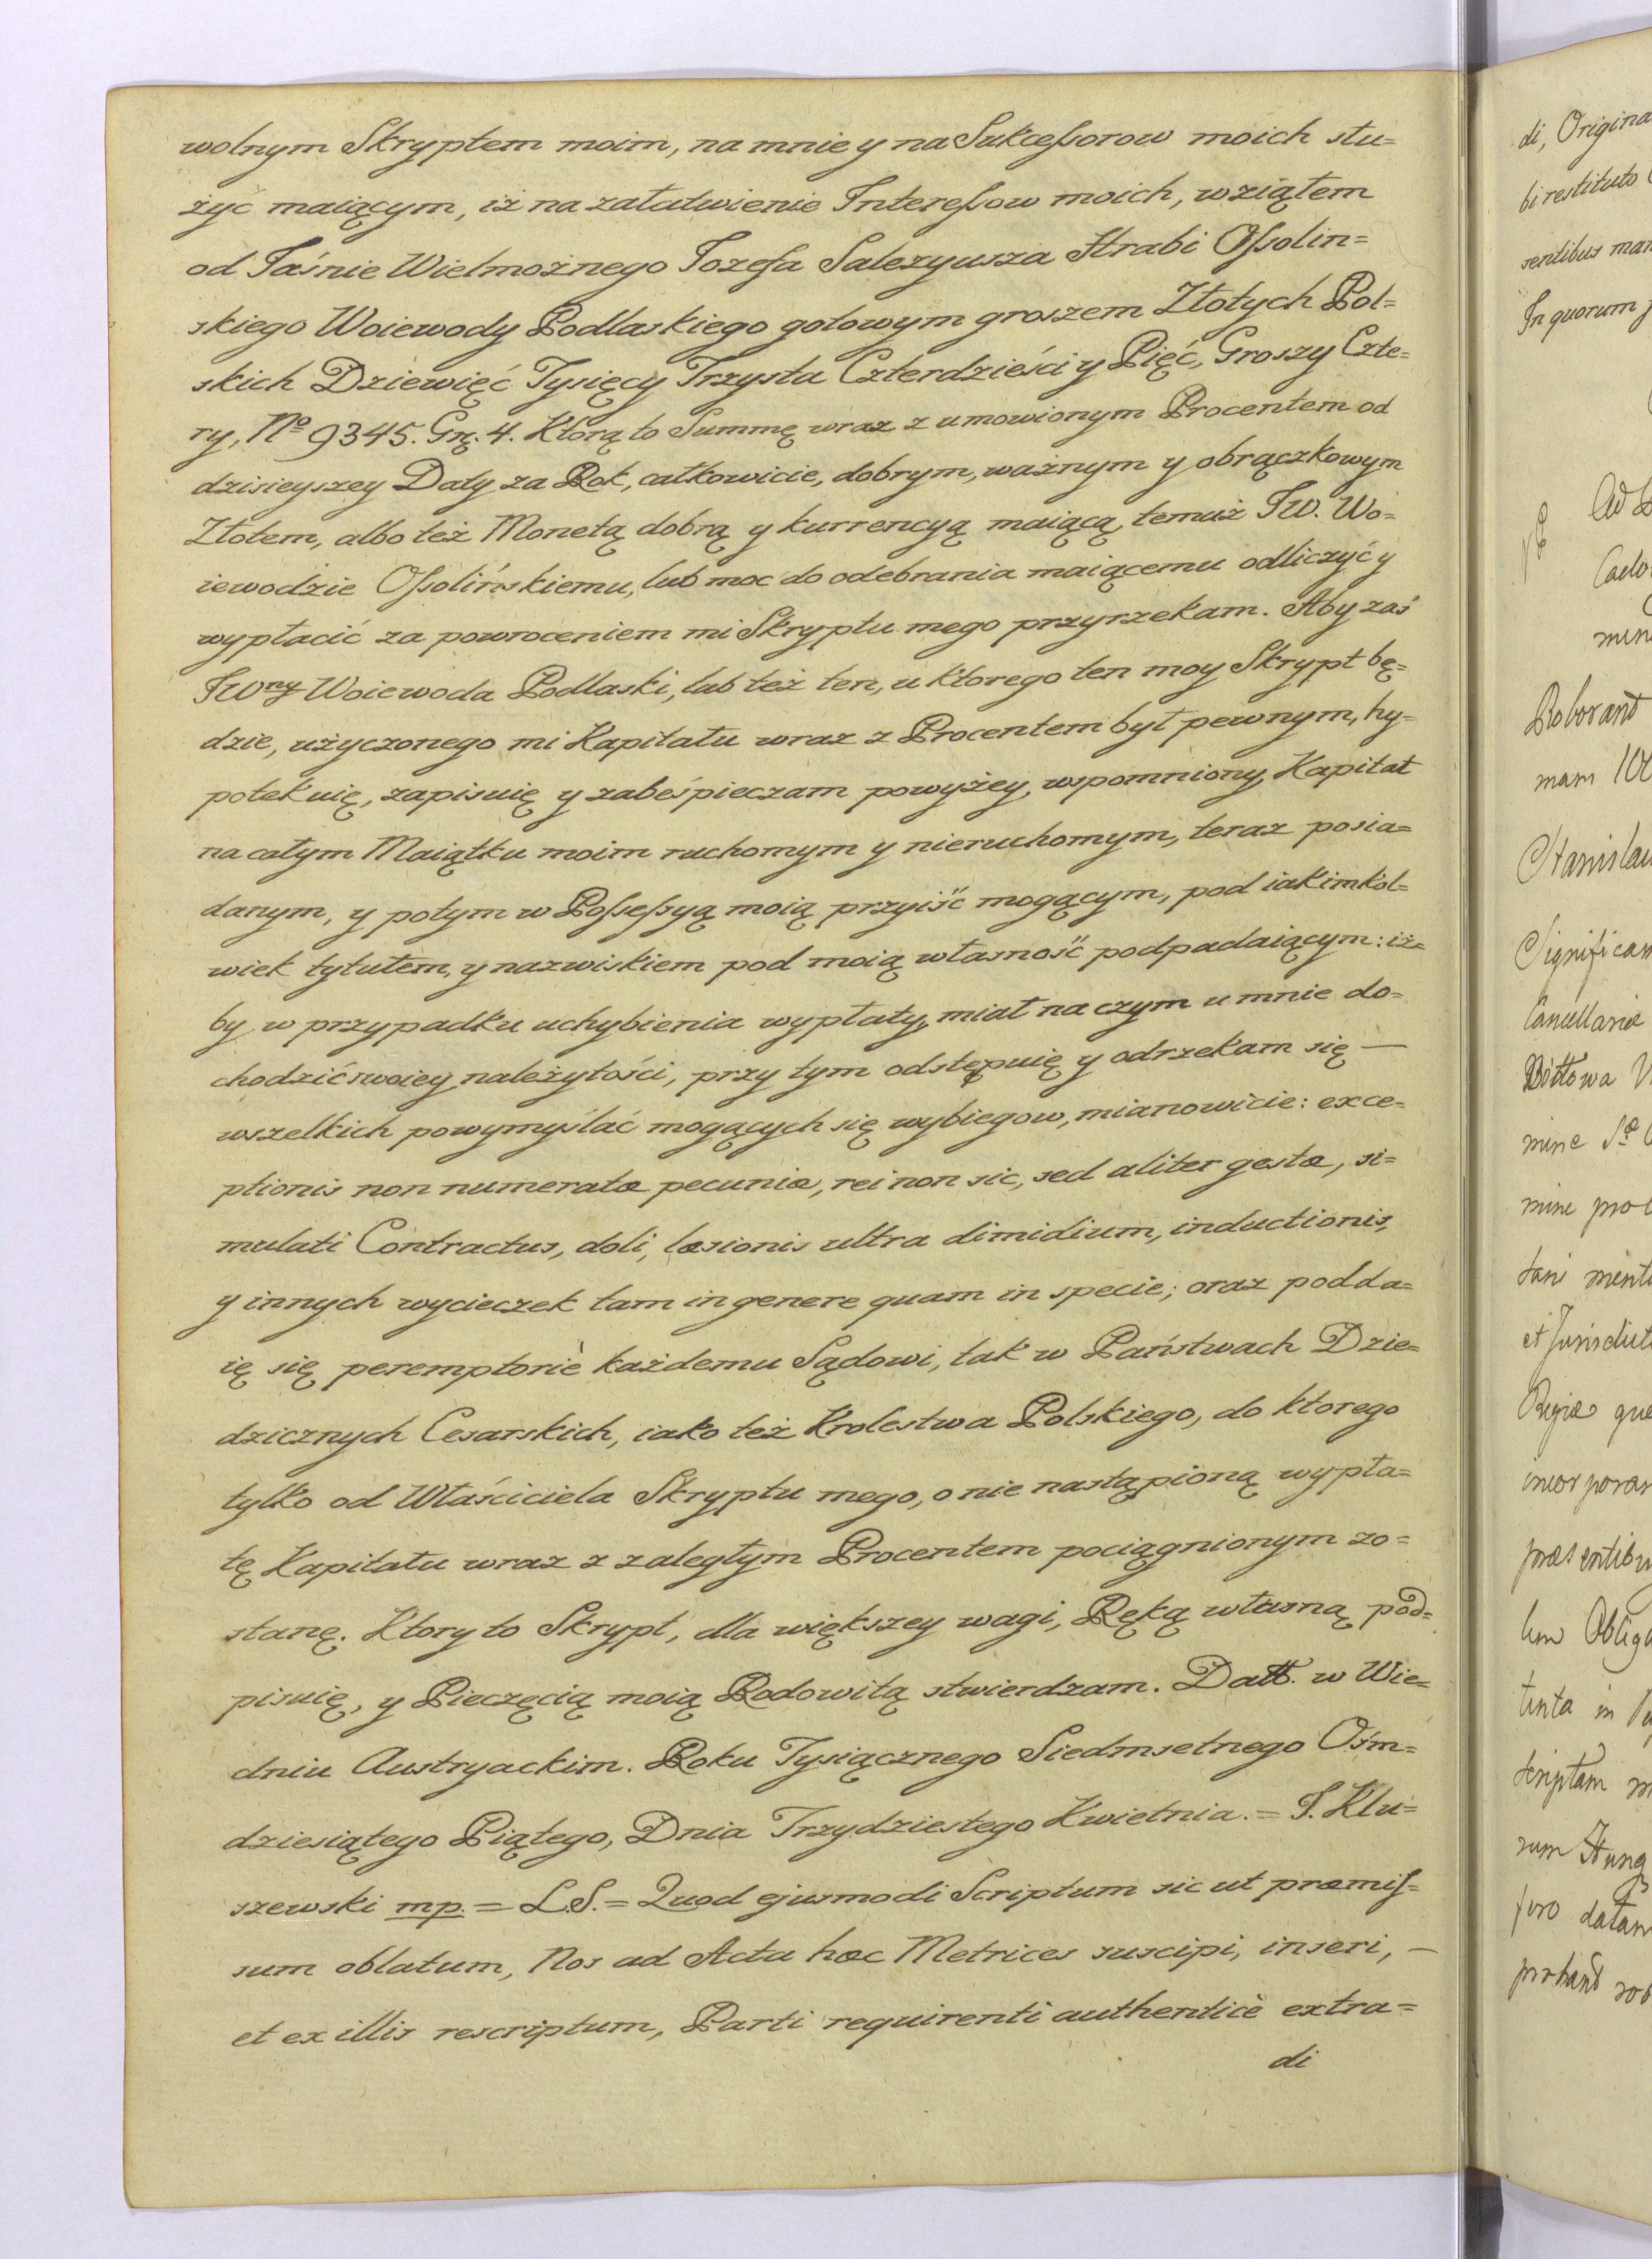 wolnym Skryptem moim, na mnie y na Sukceſsorow moich słu=
żyć maiącym, iż na załatwienie Intereſsow moich, wziąłem
od Jaśnie Wielmożnego Jozefa Salezyusza Hrabi Oſsolin=
skiego Woiewody Podlaskiego gotowym groszem Złotych Pol=
skich Dziewięć Tysięcy Trzysta Czterdzieści y Pięć, Groszy Czte=
ry, No 9345. Gr. 4. Ktorą to Summę wraz z umowionym Procentem od
dzisieyszey Daty za Rok, całkowicie, dobrym, ważnym y obrączkowym
Złotem, albo też Monetą dobrą y kurrencyą maiącą, temuż JW. Wo=
iewodzie Oſsolińskiemu, lub moc do odebrania maiącemu odliczyć y
wypłacić za powroceniem mi Skryptu mego przyrzekam. Aby zaś
JWny Woiewoda Podlaski, lub też ten, u ktorego ten moy Skrypt bę=
dzie, użyczonego mi Kapitału wraz z Procentem był pewnym, hy=
potekuię, zapisuię y zabeśpieczam powyżey wspomniony Kapitał
na całym Maiątku moim ruchomym y nieruchomym, teraz posia=
danym, y potym w Poſseſsyą moią przyiść mogącym, pod iakimkol=
wiek tytułem, y nazwiskiem pod moią własność podpadaiącym: iż=
by w przypadku uchybienia wypłaty, miał na czym u mnie do=
chodzić swoiey należytości, przy tym odstępuię y odrzekam się —
wszelkich powymyślać mogących się wybiegow, mianowicie: exce=
ptionis non numeratæ pecuniæ, rei non sic, sed aliter gestæ, si=
mulati Contractus, doli, læsionis ultra dimidium, inductionis,
y innych wycieczek tam in genere quam in specie; oraz podda=
ię się peremptoriè każdemu Sądowi, tak w Państwach Dzie=
dzicznych Cesarskich, iako też Krolestwa Polskiego, do ktorego
tylko od Właściciela Skryptu mego, o nie nastąpioną wypła=
tę Kapitału wraz z zaległym Procentem pociągnionym zo=
stanę. Ktory to Skrypt, dla większey wagi, Ręką własną pod=
pisuię, y Pieczęcią moią Rodowitą stwierdzam. Datt. w Wie=
dniu Austryackim. Roku Tysiącznego Siedmsetnego Ośm=
dziesiątego Piątego, Dnia Trzydziestego Kwietnia. = J. Klu=
szewski mp. = L.S. = Quod ejusmodi Scriptum sic ut præmiſ=
sum oblatum, Nos ad Acta hæc Metrices suscipi, inseri, —
et ex illis rescriptum, Parti requirenti authenticè extra=
di
di, Origina
bi restituto
sentibus man
In quorum
Roborand
mam
Stanislau
Significam
Cancellariæ
mine
et Jurisdict
Regiæ que
incorporan
præsentibu
Oblig
in